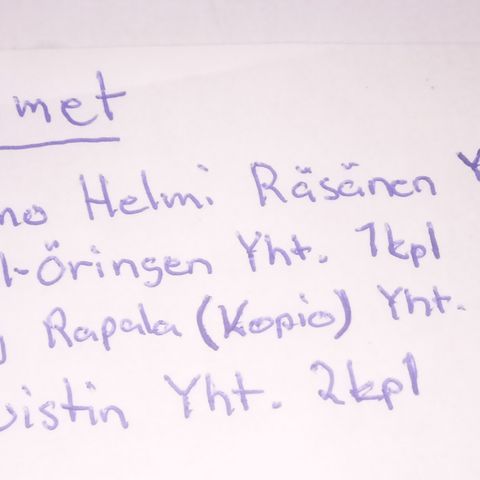 met
no Helmi Räsänen Y
l-Öringen Yht. 1kpl
Rapala (Kopio) Yht.
vistin Yht. 2kpl